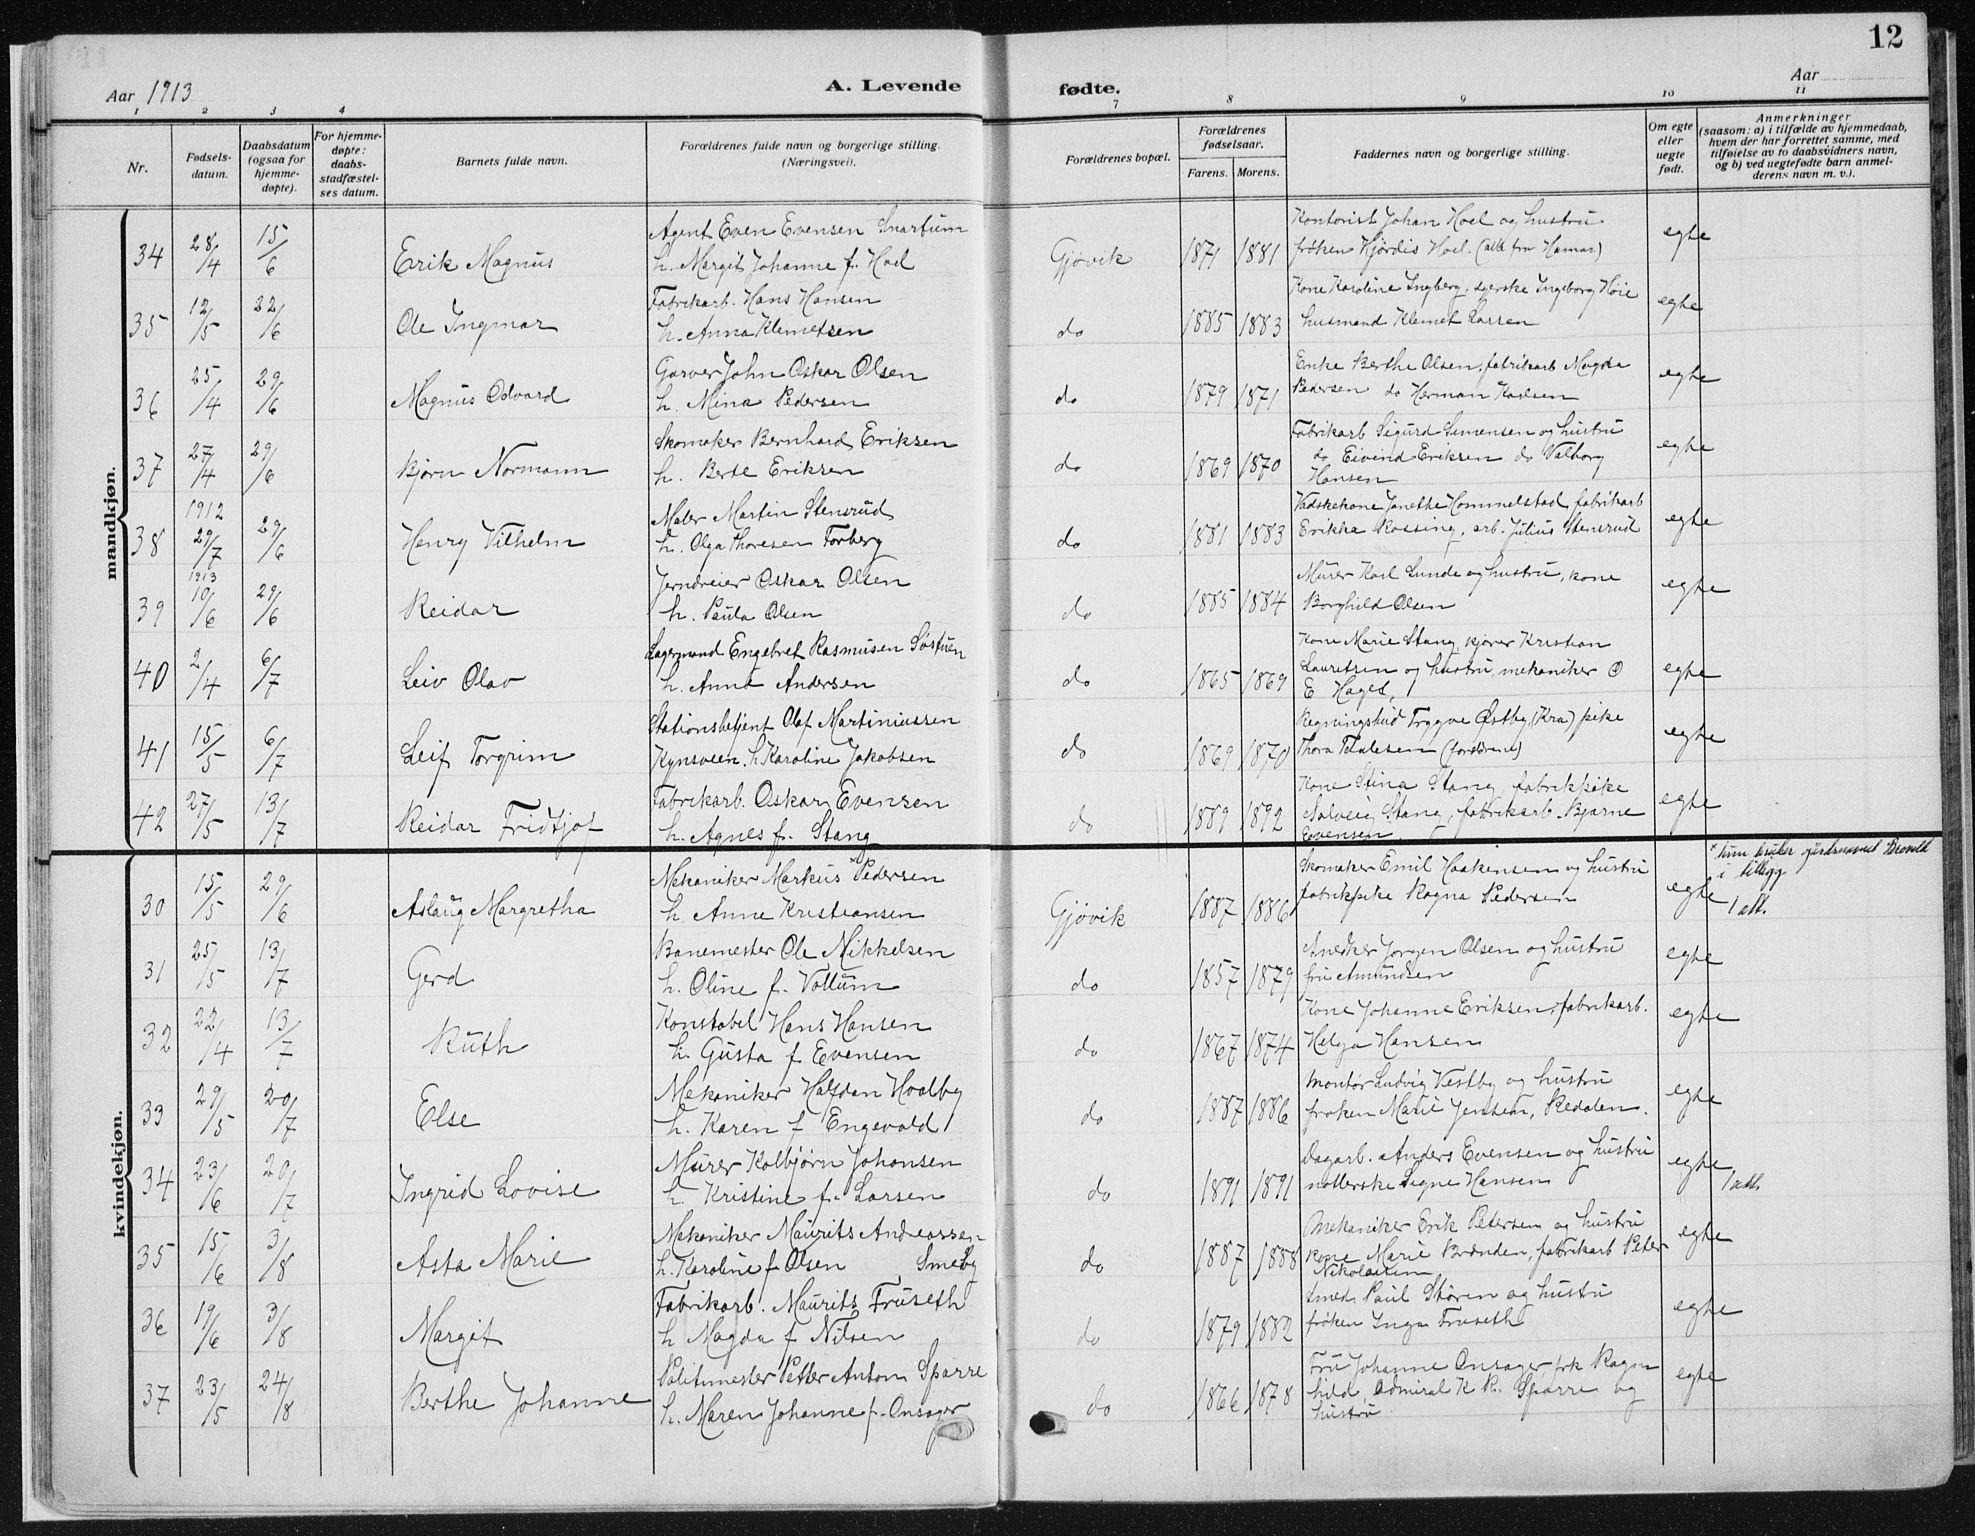 12
Aar 1913
A. Levende
fødte.
Aar
1 2 3 4
7 8 9 10 11
Nr.
Fødsels-
datum.
Daabsdatum
(ogsaa for
hjemme-
døpte).
For hjemme-
døpte:
daabs-
stadfæstel-
ses datum.
Barnets fulde navn.
Forældrenes fulde navn og borgerlige stilling.
(Næringsvei).
Forældrenes bopæl.
Forældrenes
fødselsaar.
Farens. Morens.
Faddernes navn og borgerlige stilling.
Om egte
eller
uegte
født.
Anmerkninger
(saasom: a) i tilfælde av hjemmedaab,
hvem der har forrettet samme, med
tilføielse av to daabsvidners navn,
og b) ved uegtefødte barn anmel-
derens navn m. v.).
mandkjøn.
Agent Even Evensen Snartum Kontorist Johan Hoel og hustru
34 28/4 15/6 Erik Magnus h. Margit Johanne f. Hoel Gjøvik 1871 1881 frøken Hjørdis Hoel. (alle fra Hamar) egte
Fabrikarb. Hans Hansen Kone Karoline Ingberg, syerske Ingeborg Høie
35 12/5 22/6 Ole Ingmar h. Anna Klemetsen do 1885 1883 husmand Klemet Larsen egte
Garver John Oskar Olsen Enke Berthe Olsen, fabrikarb Magda
36 25/4 29/6 Magnus Edvard h. Mina Pedersen do 1879 1871 Pedersen do Herman Karlsen egte
Skomaker Bernhard Eriksen Fabrikarb Sigurd Simensen og hustru
37 27/4 29/6 Bjørn Normann h. Berte Eriksen do 1869 1870 do Eivind Eriksen do Valborg egte
Hansen
1912 Maler Martin Stensrud Vadskekone Janethe Hommelstad, fabrikarb
38 29/7 29/6 Henry Vilhelm h. Olga Thoresen Forberg do 1881 1883 Erikka Kossing, arb. Julius Stensrud egte
1913 Jerndreier Oskar Olsen Murer Karl Lunde og hustru, kone
39 10/6 29/6 Reidar h. Paula Olsen do 1885 1884 Borghild Olsen egte
Lagermand Engebret Rasmusen Søstuen Kone Marie Stang, kjører Kristian
40 2/4 6/7 Leiv Olav h. Anna Andersen do 1865 1869 Lauritsen og hustru, mekaniker O egte
E Haget,
Stationsbetjent Olaf Martiniussen Regningsbud Trygve Østby, (Kra) pike
41 15/5 6/7 Leif Torgrim Kynsveen, h. Karoline Jakobsen do 1869 1870 Thora egte
Fabrikarb. Oskar Evensen Kone Stina Stang, fabrikpike
42 27/5 13/7 Reidar Fridtjof h. Agnes f. Stang do 1889 1892 Solveig Stang, fabrikarb. Bjarne egte
Evensen
kvindekjøn.
Mekaniker Markus Pedersen Skomaker Emil Haakensen og hustru x kun bruker gaardsnavnet
30 15/5 29/6 Aslaug Margretha h. Anne Kristiansen Gjøvik 1887 1886 fabrikpike Ragna Pedersen egte i tillegg
1 att.
Banemester Ole Mikkelsen Snedker Jørgen Olsen og hustru
31 25/5 13/7 Gerd h. Oline f. Vollum do 1857 1879 fru Amundsen egte
Konstabel Hans Hansen Kone Johanne Eriksen, fabrikarb.
32 22/4 13/7 Ruth h. Gusta f. Evensen do 1867 1874 Helga Hansen egte
Mekaniker Halfdan Hoelby Montør Ludvig Vestby og hustru
33 29/5 20/7 Else h. Karen f Engevold do 1887 1886 frøken Marie Jensen, Redalen. egte
Murer Kolbjørn Johansen Dagarb. Anders Evensen og hustru
34 23/6 20/7 Ingrid Lovise h. Kristine f. Larsen do 1891 1891 Signe Hansen egte 1 att.
Mekaniker Maurits Andreassen Mekaniker Erik Petersen og hustru
35 15/6 3/8 Asta Marie h. Karoline f Olsen Smeby do 1887 1888 kone Marie Brænden, fabrikarb Peter egte
Nikolaisen
Fabrikarb. Maurits Fruseth Smed Paul Støren og hustru
36 19/6 3/8 Margit h Magda f Nilsen do 1879 1882 frøken Inga Fruseth egte
Politimester Petter Anton Sparre Fru Johanne Onsager, frk Ragn
37 23/5 24/8 Berthe Johanne h. Maren Johanne f. Onsager do 1866 1878 hild, admiral K. R. Sparre og egte
hustru